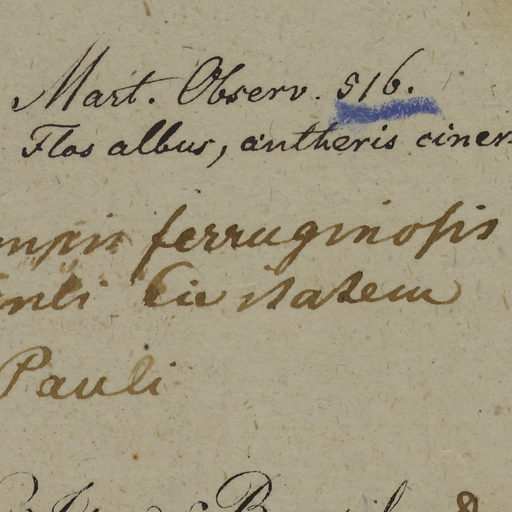 Mart. Observ. 516.
Flos albus, antheris ciner
ferruginosis
Civitatem
Pauli